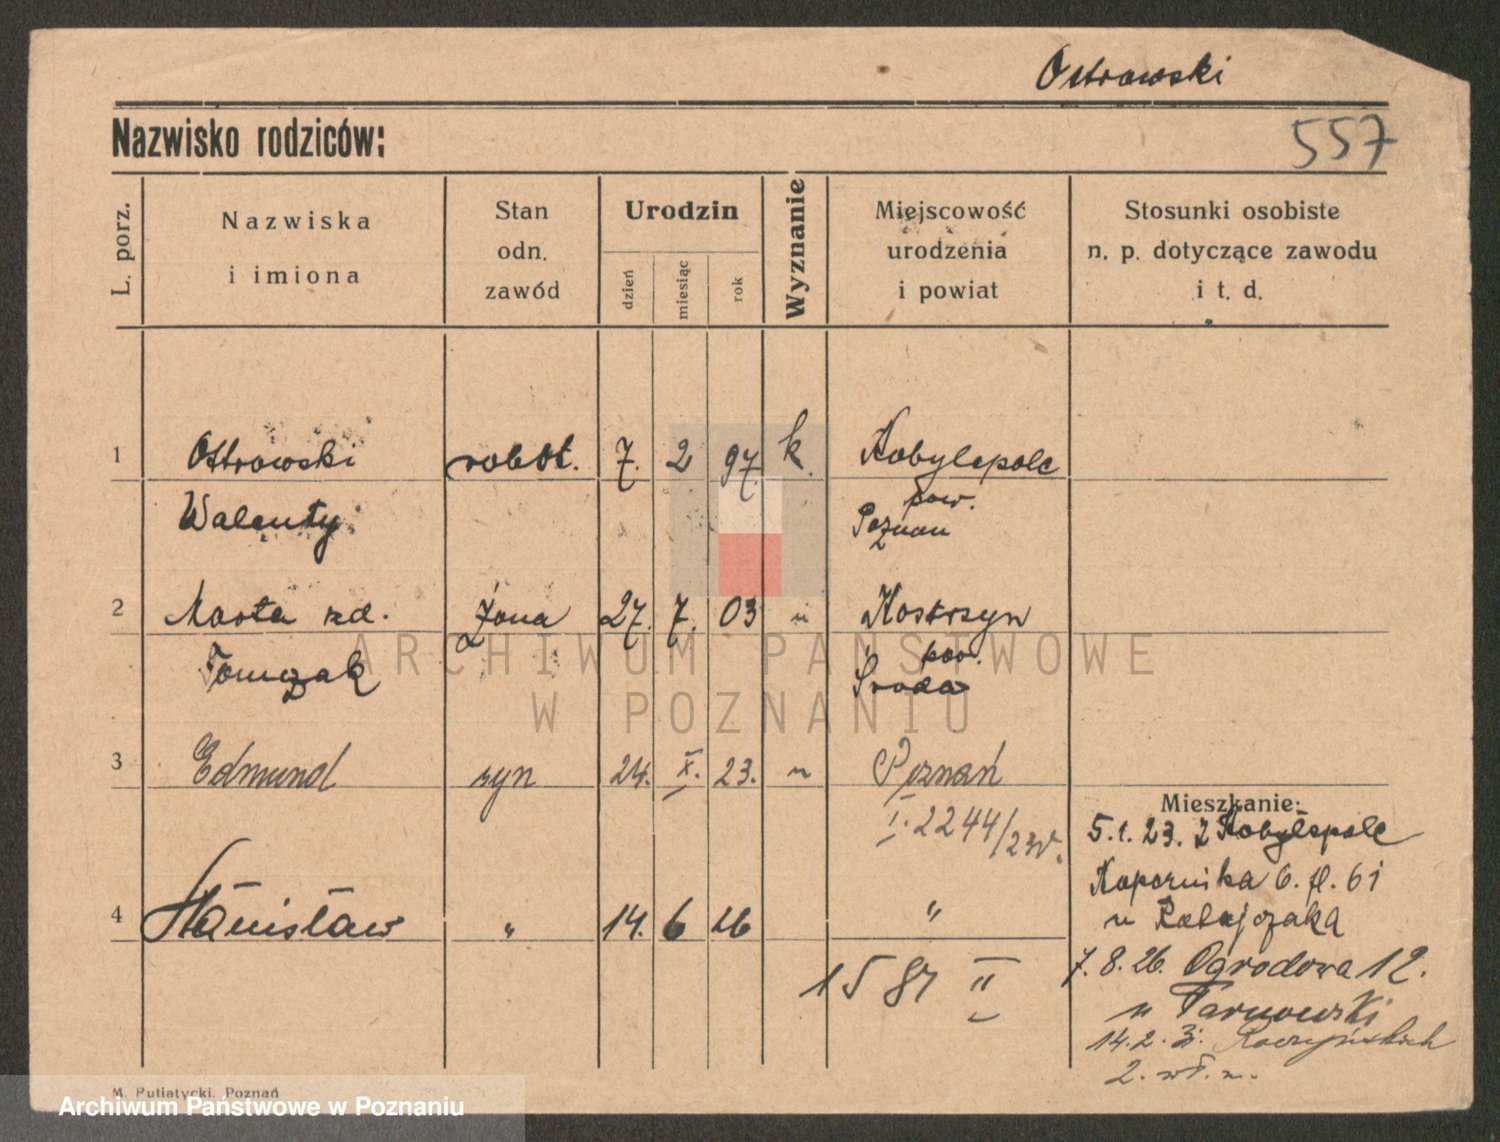 Ostrowski
Nazwisko rodziców:
557
L. porz.
Nazwiska
i imiona
Stan
odn.
zawód
Urodzin
dzień
miesiąc
rok
Wyznanie
Miejscowość
urodzenia
i powiat
Stosunki osobiste
n. p. dotyczące zawodu
i t. d.
1 Ostrowski robot. 7. 2 97 k. Kobylepole
Walenty pow.
Poznań
2 Marta zd. żona 27. 7. 03 " Kostrzyn
Tomczak pow.
Środa
3 Edmund syn 24. X. 23. " Poznań
I. 2244/23
Mieszkanie:
5.1.23. z Kobylepole
Kopernika 6. 61
u Ratajczaka
4 Stanisław " 14. 6 26 "
15 II
7.8.26. Ogrodowa 12.
u Tarnowski
14.2.31. Raczyńskich
2.
M. Putiatycki, Poznań
ARCHIWUM PAŃSTWOWE
W POZNANIU
Archiwum Państwowe w Poznaniu